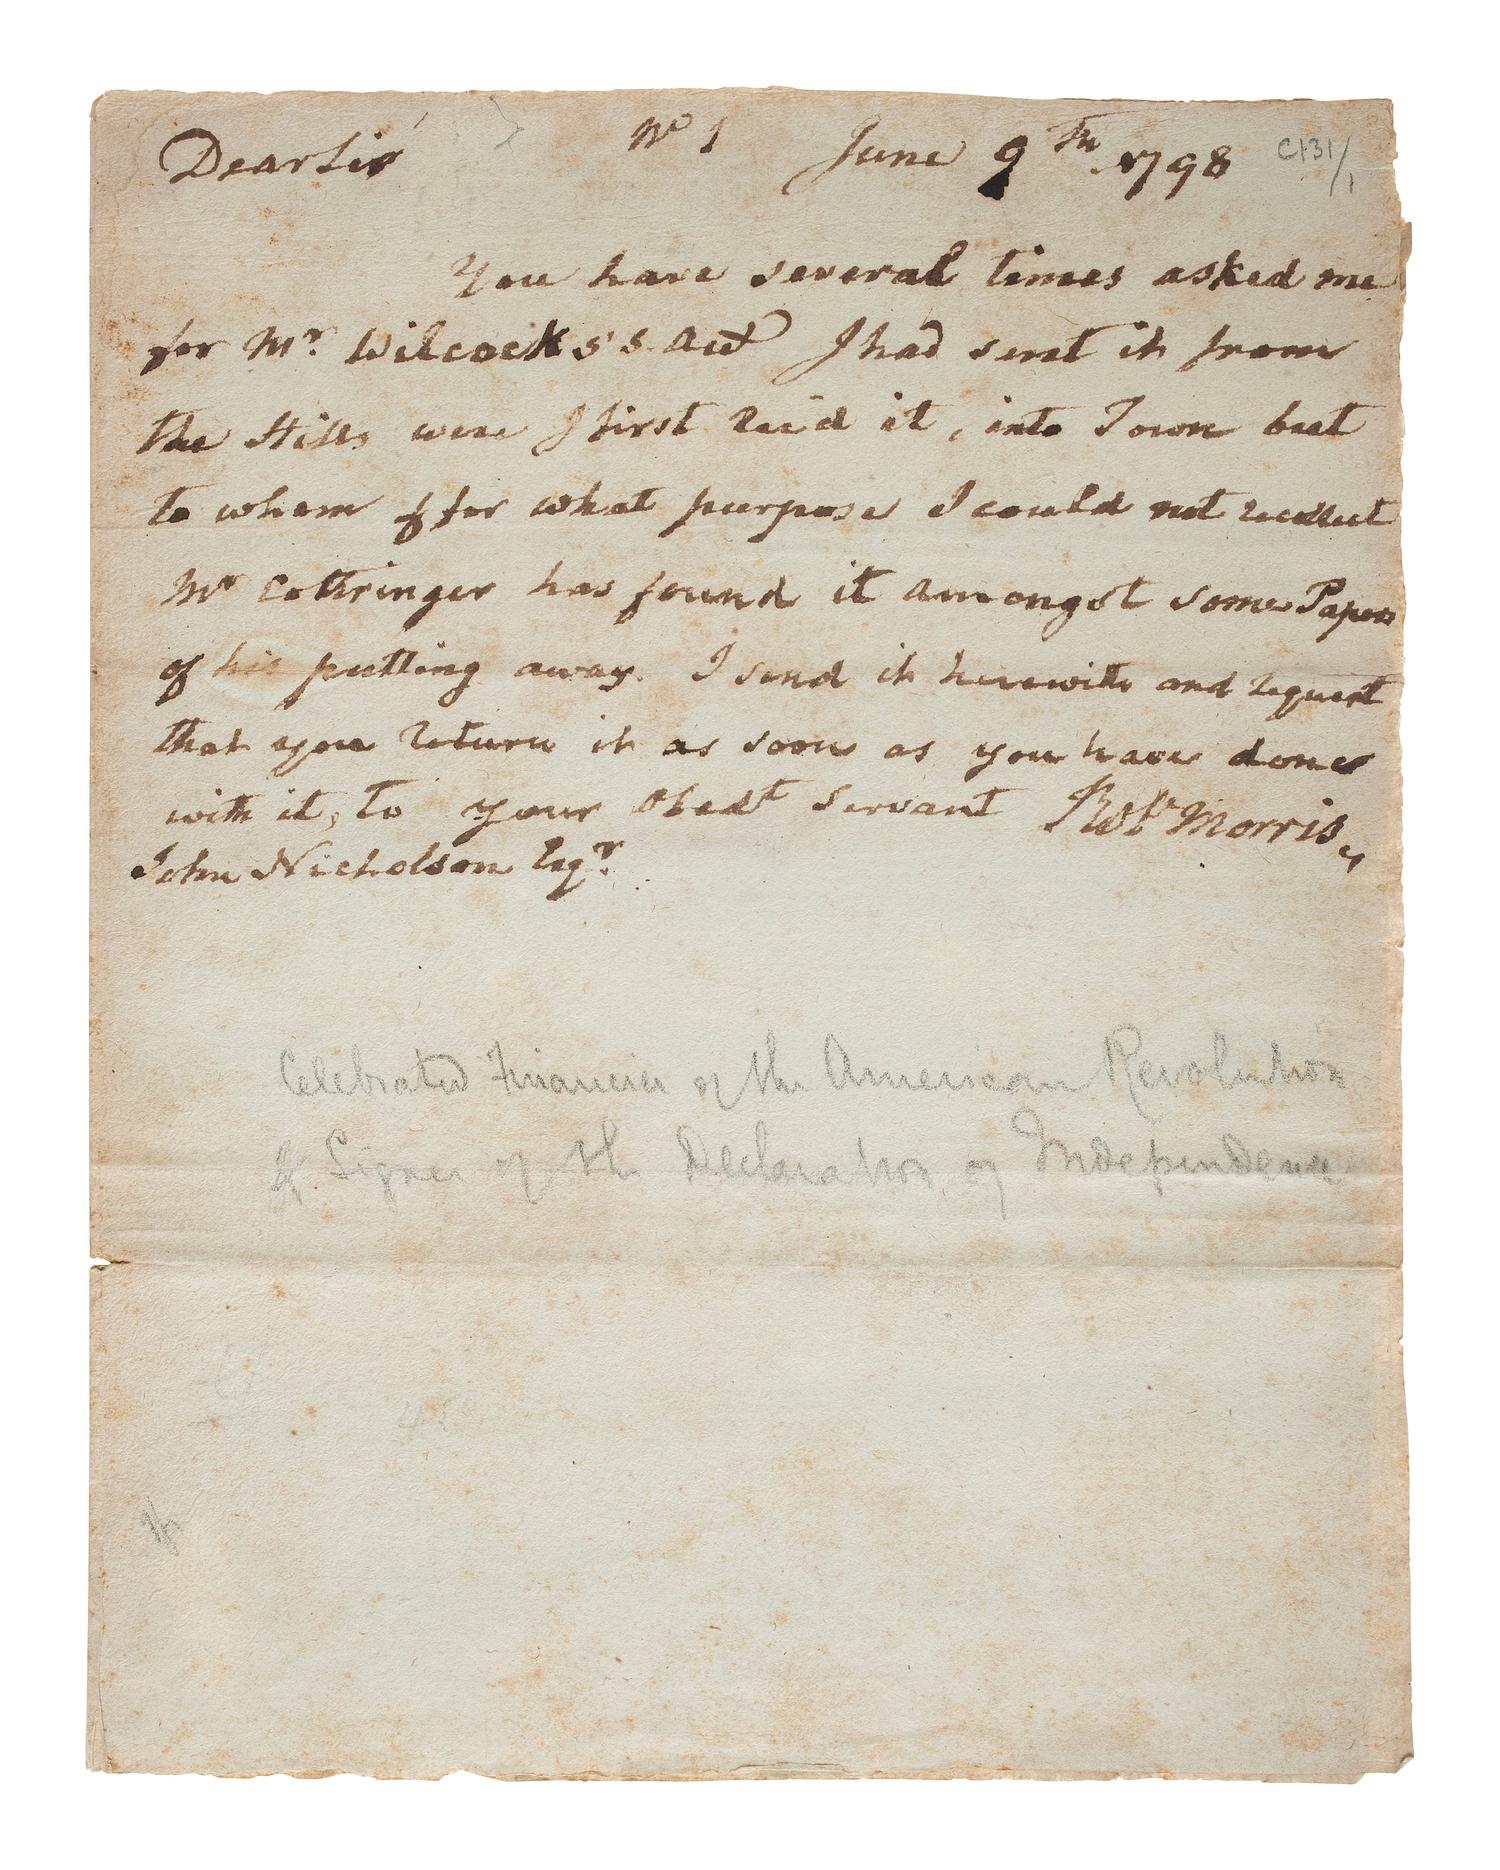 Dear Sir No 1 June 9th 1798 C131/1
You have several times asked me
for Mr. Wilcocks's Acct I had sent it from
the Hills were I first Rec'd it, into Town but
to whom & for what purpose I could not recollect
Mr Cottringer has found it amongst some Papers
of his putting away. I send it herewith and request
that you return it as soon as you have done
with it, to your Obedt Servant Robt Morris
John Nicholson Esqr.
Celebrated Financier of the American Revolution
& Signer of the Declaration of Independence